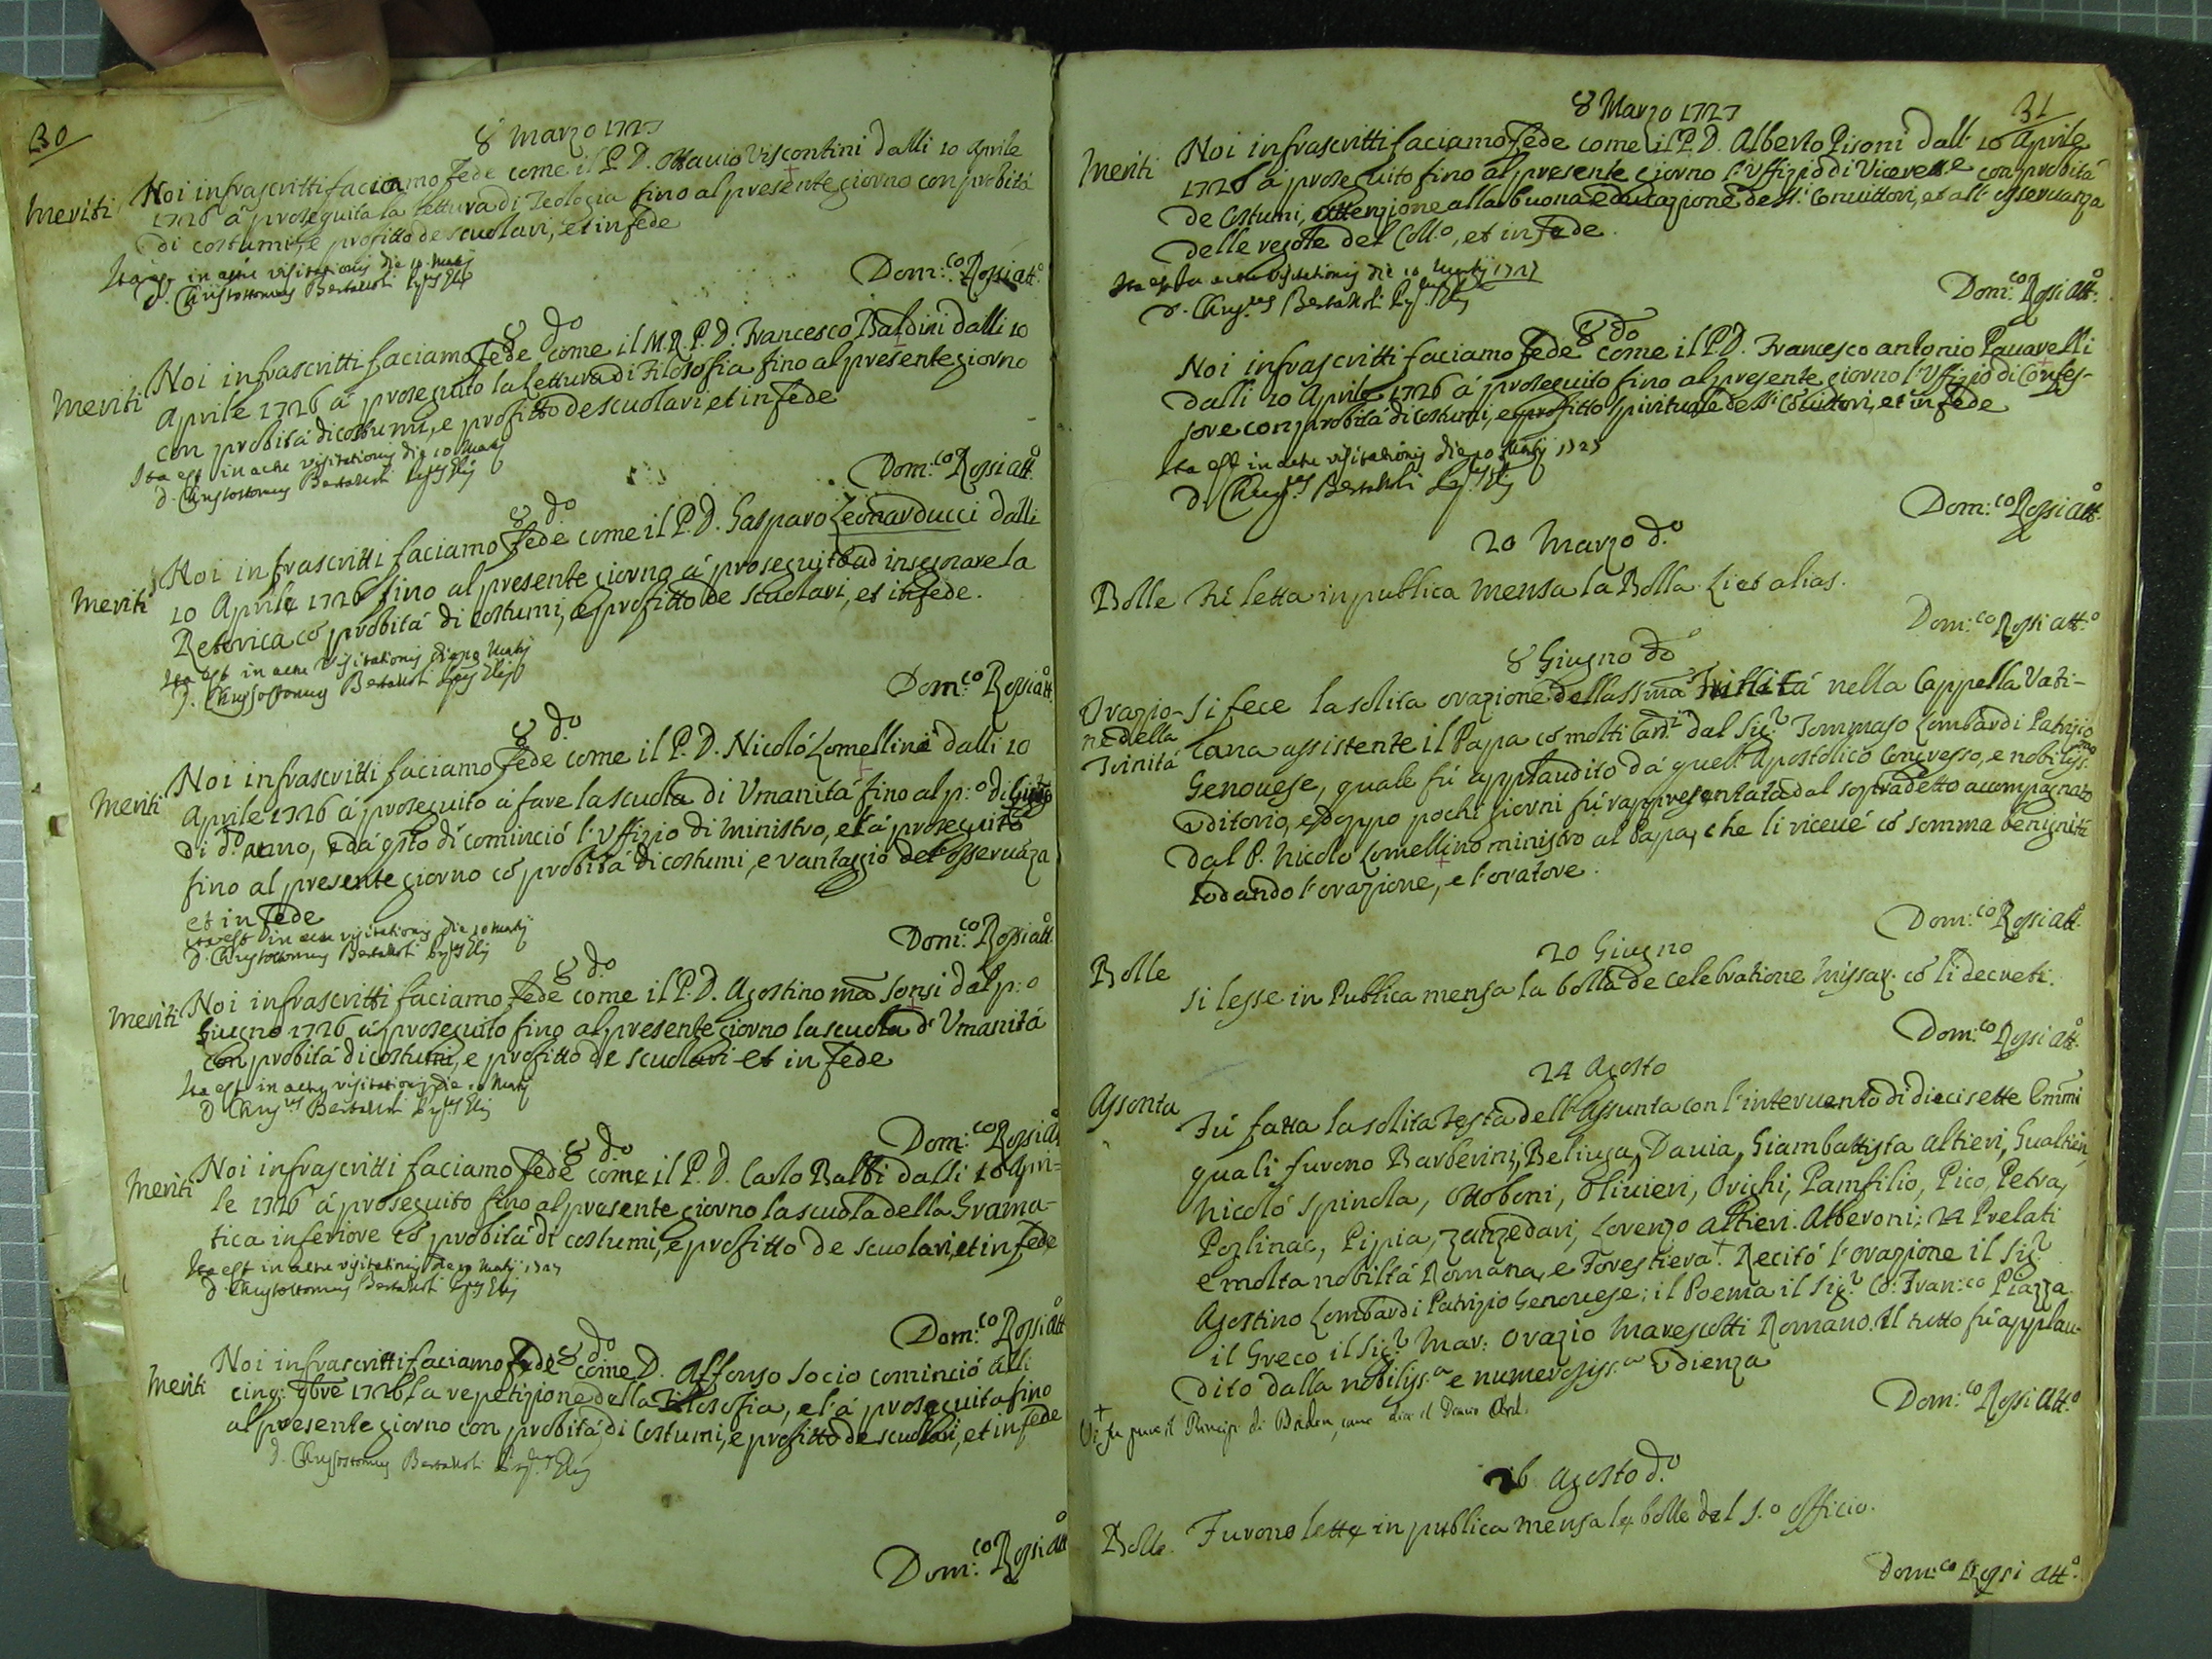 30
8 Marzo 1727
Meriti Noi infrascritti facciamo Fede come il P. D. Ottavio Viscontini dalli 10 Aprile
1726 á proseguita la lettura di Teologia fino al presente giorno con probitá
di costumi, e profitto de scuolari, et in fede
Ita est in actu visitationis die 10 Martij
D. Chrysostomus Bertazzoli
Dom:co Rossi Att.o
8 d.o
Meriti Noi infrascritti faciamo Fede come il M. R. P. D. Francesco Baldini dalli 10
Aprile 1726 á proseguito la Lettura di Filosofia fino al presente giorno
con probitá di costumi, e profitto de scuolari et in fede
Ita est in actu visitationis die 10 Martij
D. Chrysostomus Bertazzoli
Dom:co Rossi Att.o
8 d.o
Meriti Noi infrascritti faciamo Fede come il P. D. Gasparo Leonarducci dalli
10 Aprile 1726 fino al presente giorno á proseguito ad insegnare la
Retorica cõ probitá di costumi, e profitto de scuolari, et in fede.
Ita est in actu visitationis die 10 Martij
D. Chrysostomus Bertazzoli
Dom:co Rossi Att.o
8 d.o
Meriti Noi infrascritti faciamo Fede come il P. D. Nicoló Lomellini dalli 10
Aprile 1726 á proseguito á fare la scuola di Umanitá fino al p:o di Giugno
di d.o anno, e dá qsto dí cominció l'Uffizio di Ministro, et á proseguito
fino al presente giorno cõ probitá di costumi, e vantaggio del osservãza
et in Fede
Ita est in actu visitationis die 10 Martij
D. Chrysostomus Bertazzoli
Dom:co Rossi Att.o
8 d.o
Meriti Noi infrascritti faciamo Fede come il P. D. Agostino Mã Sorsi dal p:o
Giugno 1726 á proseguito fino al presente giorno la scuola d' Umanitá
con probitá di costumi, e profitto de scuolari et in Fede
Ita est in actu visitationis die 10 Martij
D. Chrys.us Bertazzoli
Dom:co Rossi Att.o
8 d.o
Meriti Noi infrascritti faciamo Fede come il P. D. Carlo Balbi dalli 10 Apri=
le 1726 á proseguito fino al presente giorno la scuola della Grama-
tica inferiore cõ probitá di costumi, e profitto de scuolari, et in fede
Ita est in actu visitationis die 10 Martij 1727
D. Chrysostomus Bertazzoli
Dom:co Rossi Att.o
8 d.o
Meriti Noi infrascritti faciamo Fede come D. Alfonso Socio cominció alli
cinq: 9bre 1726 la repetizione della Filosofia, et á proseguita fino
al presente giorno con probitá di Costumi, e profitto de scuolari, et in fede
D. Chrysostomus Bertazzoli
Dom:co Rossi Att.o
31
8 Marzo 1727
Meriti Noi infrascritti faciamo Fede come il P. D. Alberto Pisoni dalli 10 Aprile
1726 á proseguito fino al presente giorno l'Uffizio di Vicerettore con probitá
de Costumi, attenzione alla buona educazione delli Convittori, et all' osservanza
delle regole del Coll.o, et in fede.
Ita est in actu visitationis die 10 Martij 1727
D. Chrys.us Bertazzoli
Dom:co Rossi Att.o
8 d.o
Noi infrascritti faciamo Fede come il P. D. Francesco Antonio Pavarelli
dalli 10 Aprile 1726 á proseguito fino al presente giorno l'Uffizio di Confes-
sore con probitá di costumi, e profitto spirituale delli Cõvittori, et in fede
Ita est in actu visitationis die 10 Martij 1727
D. Chrys.us Bertazzoli
Dom:co Rossi Att.o
20 Marzo d.o
Bolle Fú letta in publica mensa la Bolla Licet alias.
Dom:co Rossi Att.o
8 Giugno d.o
Orazio- Si fece la solita orazione della Ssma Trinitá nella Cappella Vati-
ne della cana assistente il Papa cõ molti Cardi dal Sig.r Tommaso Lombardi Patrizio
Trinitá Genovese, quale fú applaudito dá quell' Apostolico Congresso, e nobiliss.mo
Uditorio, e doppo pochi giorni fú rappresentata dal sopradetto accompagnato
dal P. Nicolo Lomellino ministro al Papa, che li ricevé cõ somma benignitá
lodando l'orazione, e l'oratore.
Dom:co Rossi Att.o
20 Giugno
Bolle Si lesse in Publica mensa la bolla de celebratione Missar. cõ li decreti.
Dom:co Rossi Att.o
24 Agosto
Assonta Fú fatta la solita Festa dell' Assunta con l'intervento di diecisette Emmi
quali furono Barberini, Beliuga, Davia, Giambattista Altieri, Gualtieri,
Nicoló Spinola, Ottoboni, Olivieri, Orighi, Pamfilio, Pico, Petra,
Pozlinac, Pipia, Zanzedari, Lorenzo Altieri. Alberoni; 24 Prelati
e molta nobiltá Romana, e Forestiera.† Recitó l'orazione il Sig.r
Agostino Lombardi Patrizio Genovese; il Poema il Sig.r Co: Fran:co Piazza
il Greco il Sig.r Mar: Orazio Marescotti Romano. Il tutto fú applau-
dito dalla nobiliss.a e numerosiss.a Udienza
Dom:co Rossi Att.o
† Vi fu pure il Principe di Baden, come dice il Diario
26 Agosto d.o
Bolle. Furono lette in publica mensa le bolle del S.o Officio.
Dom:co Rossi Att.o